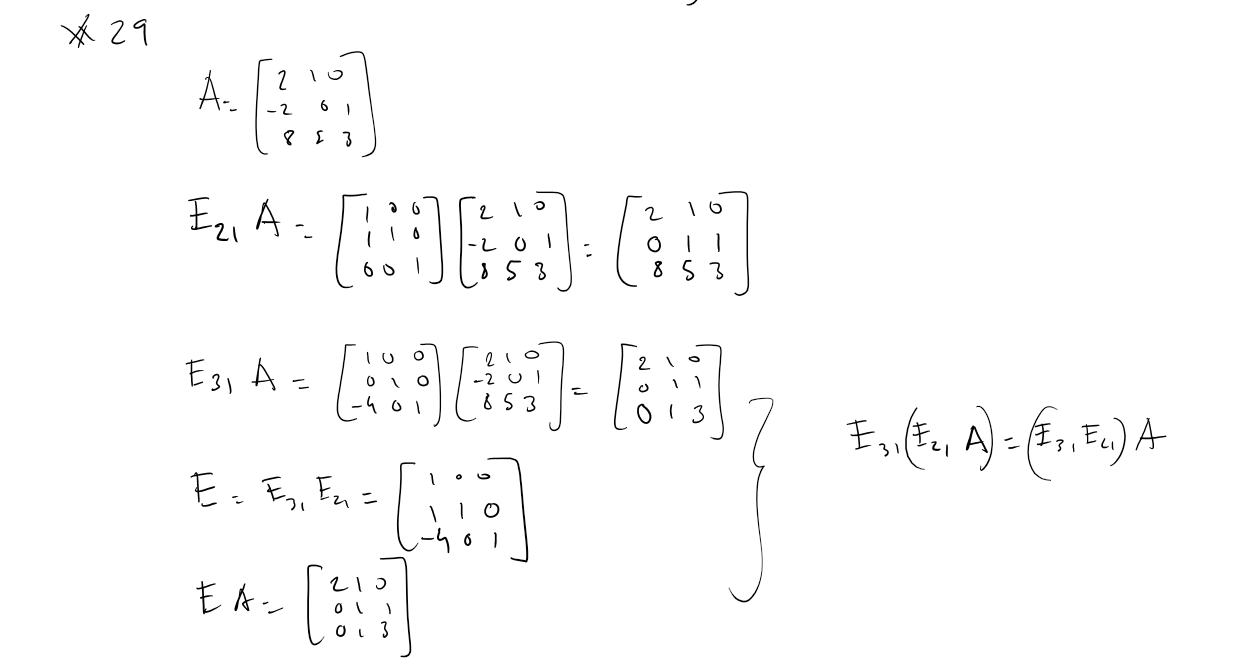 29
A = [2 1 0; -2 0 1; 8 5 3]
E₂₁ A = [1 0 0; 1 1 0; 0 0 1] [2 1 0; -2 0 1; 8 5 3] = [2 1 0; 0 1 1; 8 5 3]
E₃₁ A = [1 0 0; 0 1 0; -4 0 1] [2 1 0; -2 0 1; 8 5 3] = [2 1 0; 0 1 1; 0 1 3]
E₃₁(E₂₁ A) = (E₃₁ E₂₁) A
E = E₃₁ E₂₁ = [1 0 0; 1 1 0; -4 0 1]
E A = [2 1 0; 0 1 1; 0 1 3]